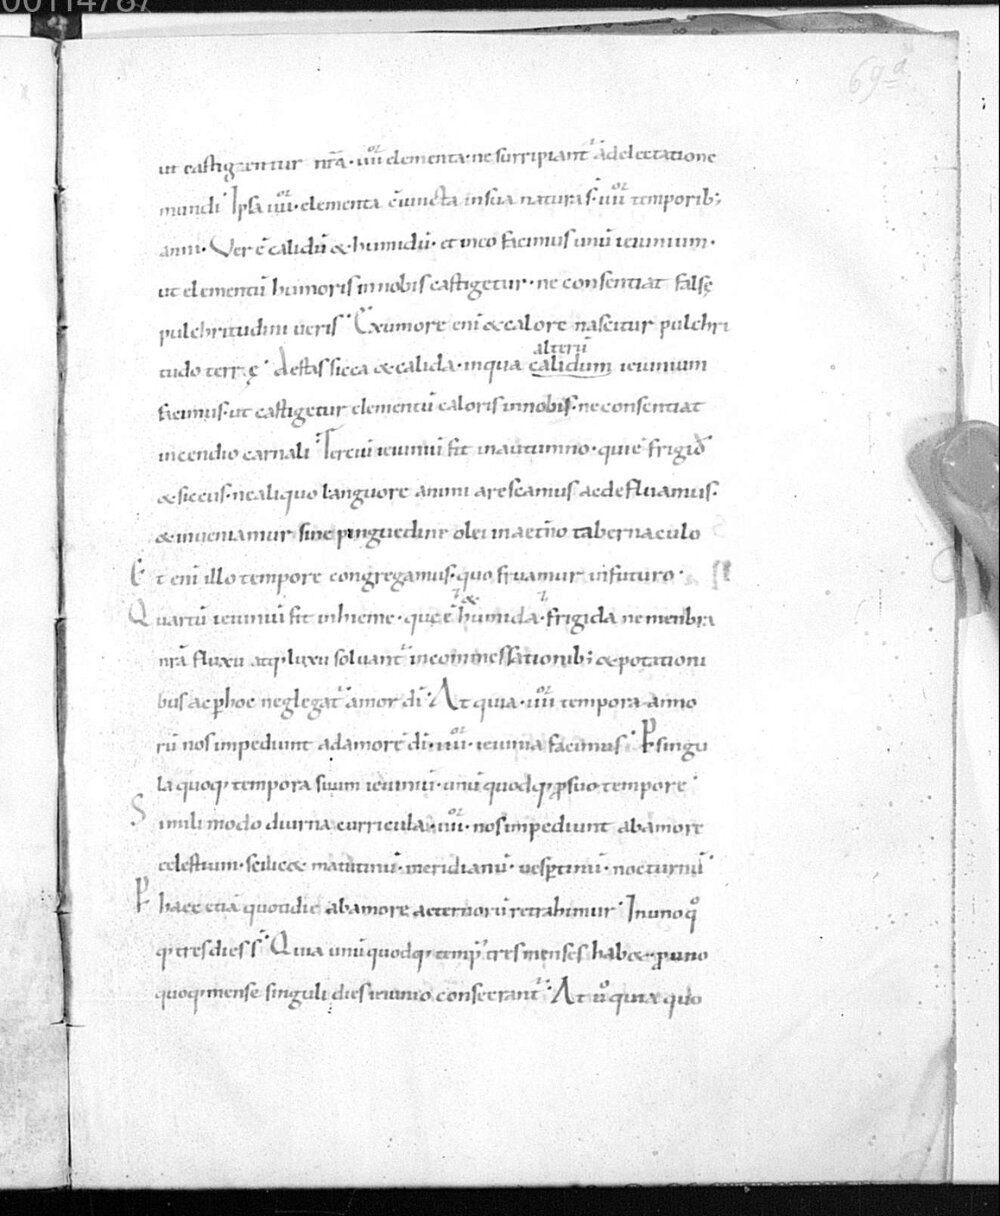 00114787
69a
ut castigentur nr̄a · iiii or elementa · ne surripiant᷑ a delectatione
mundi · Ipsa iiii or · elementa c̄iuncta in sua natura s̄ · iiii or temporib;
anni · Ver ē calidū & humidū · et in eo facimus unū ieiunium ·
ut elementū humoris in nobis castigetur · ne consentiat falsę
pulchritudini ueris · Ex humore enī & calore nascitur pulchri
tudo terrę · Aestas sicca & calida · in qua calidum ieiunium
alterū
facimus · ut castigetur elementū caloris in nobis · ne consentiat
incendio carnali · Terciū ieiuniū fit in autumno · qui ē frigid᷒
& siccus · ne aliquo languore animi arescamus ac defluamus ·
& inueniamur sine pinguedine olei in aet̄no tabernaculo
Et enī illo tempore congregamus · quo fruamur in futuro ·
Quartū ieiuniū fit in hieme · que ē & humida · frigida ne menbra
nr̄a fluxu atq; luxu soluant᷑ in commessationib; & potationi
bus ac p hoc neglegat᷑ amor dī · At quia · iiii or tempora anno
rū nos impediunt ad amorē dī · iiii or · ieiunia facimus · P singu
la quoq; tempora suum ieiuniū · unū quodq; p suo tempore ·
Simili modo diurna curricula · iiii or · nos impediunt ab amore
celestium · scilic& matutinū · meridianū · uesptinū · nocturnū ·
P haec etiā quotidie ab amore aeternorū retrahimur · In uno q̊
q; tres dies s̄ · Quia unū quodq; temp᷒ tres menses hab& · p uno
quoq; mense singuli dies ieiunio consecrant᷑ · At ů quia quo